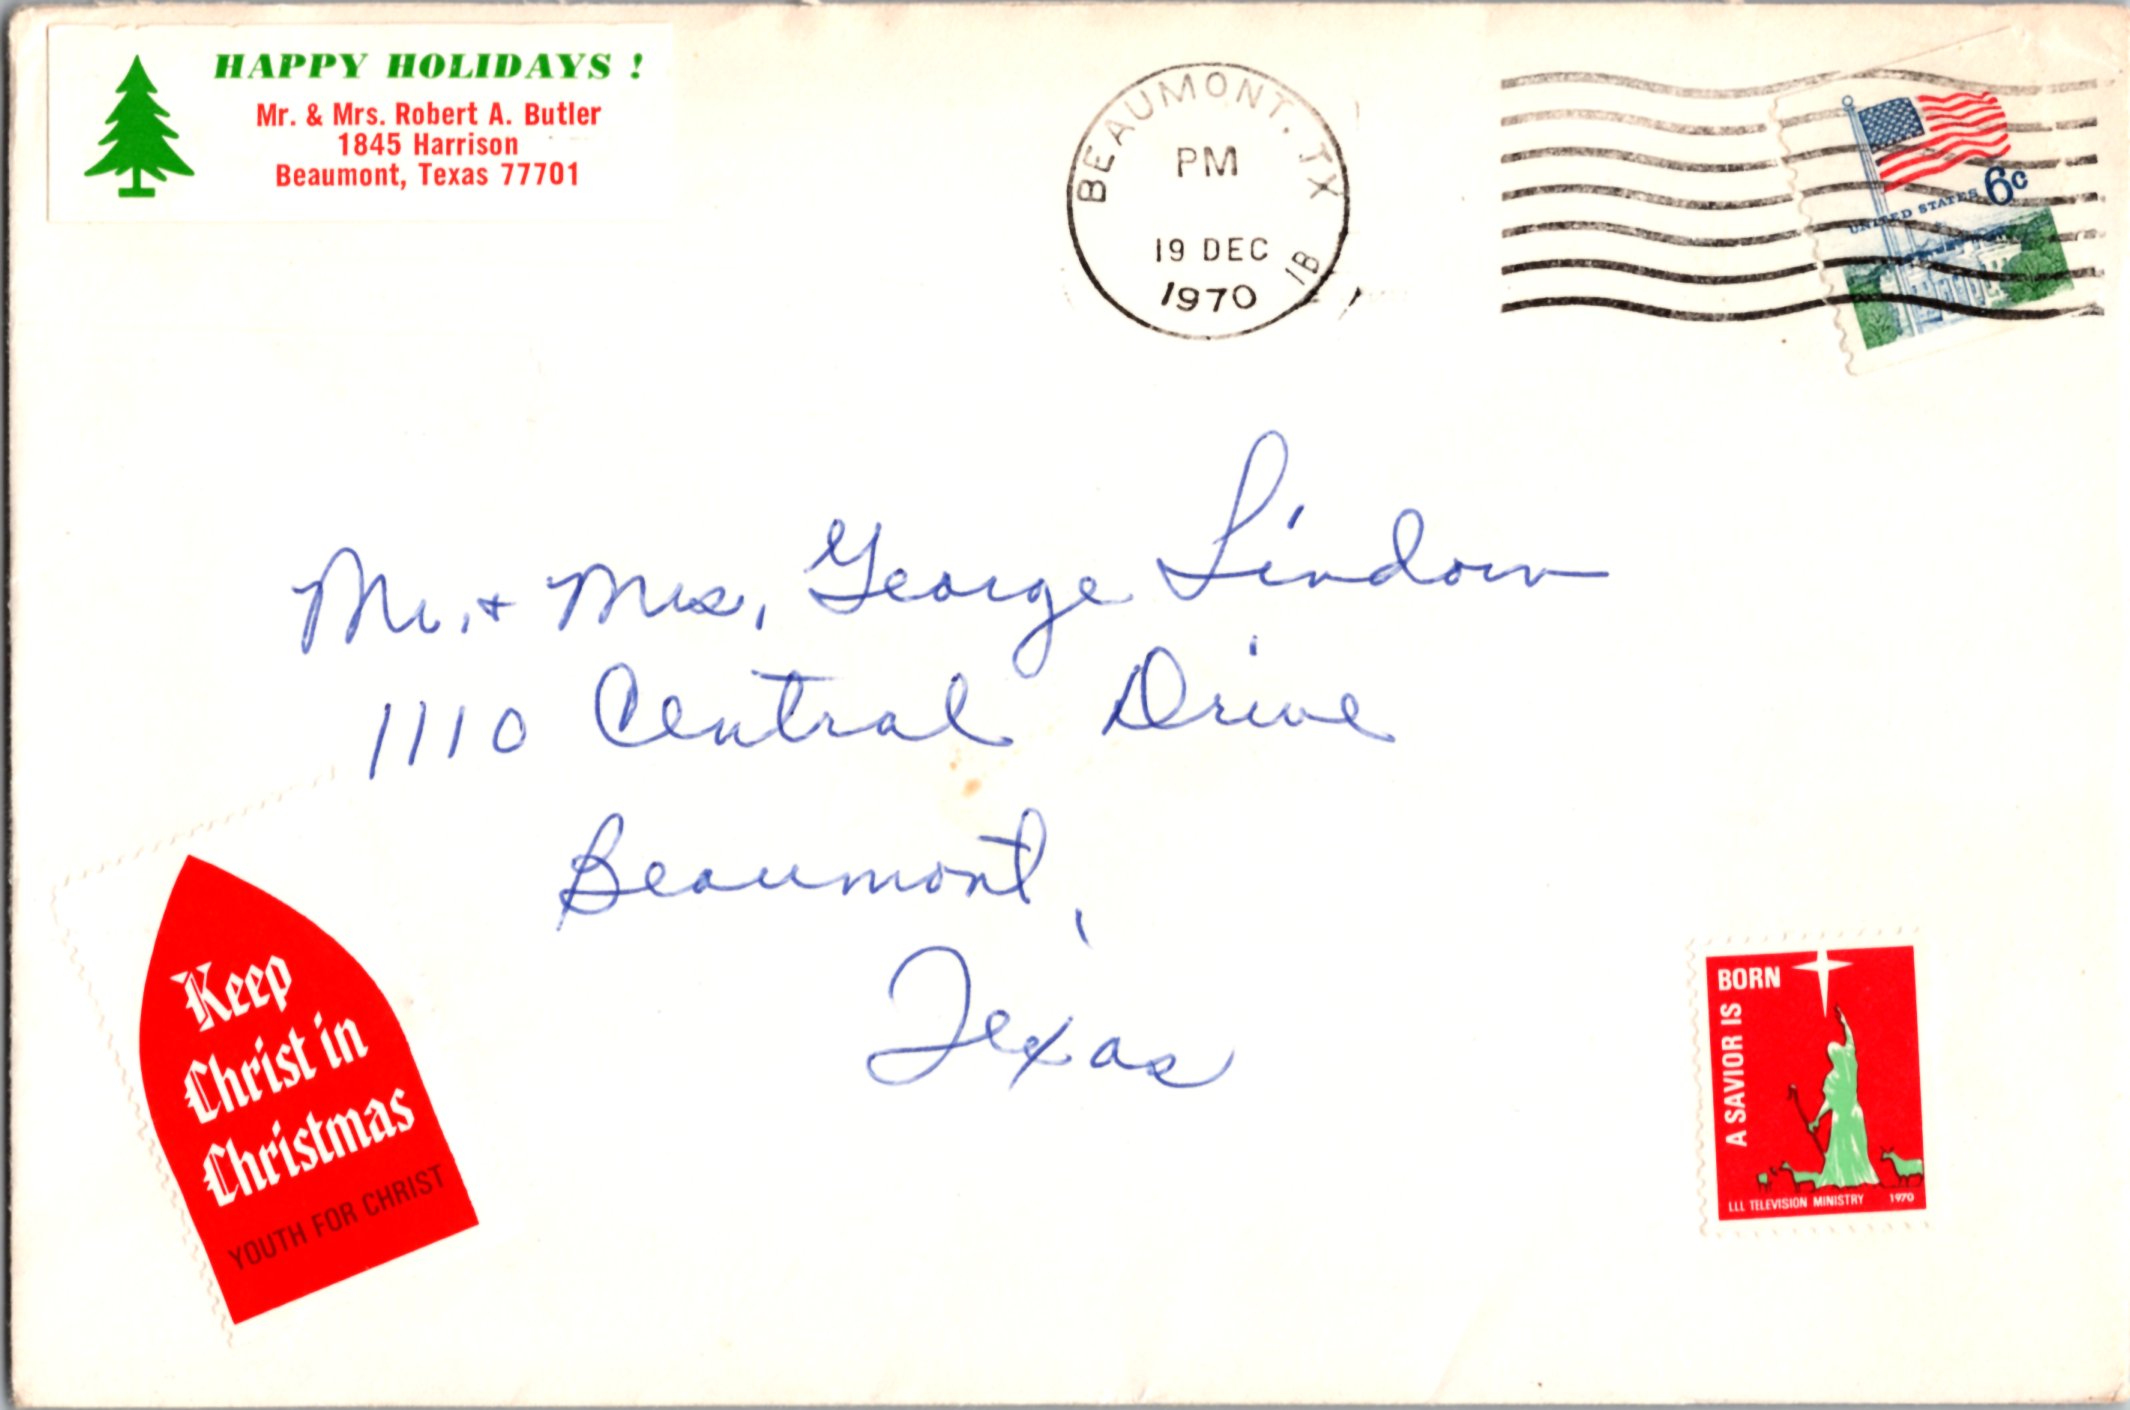 HAPPY HOLIDAYS !
Mr. & Mrs. Robert A. Butler
1845 Harrison
Beaumont, Texas 77701
BEAUMONT. TX
PM
19 DEC
1970
1B
UNITED STATES 6c
Mr. & Mrs. George Lindow
1110 Central Drive
Beaumont,
Texas
Keep
Christ in
Christmas
YOUTH FOR CHRIST
A SAVIOR IS BORN
LLL TELEVISION MINISTRY 1970